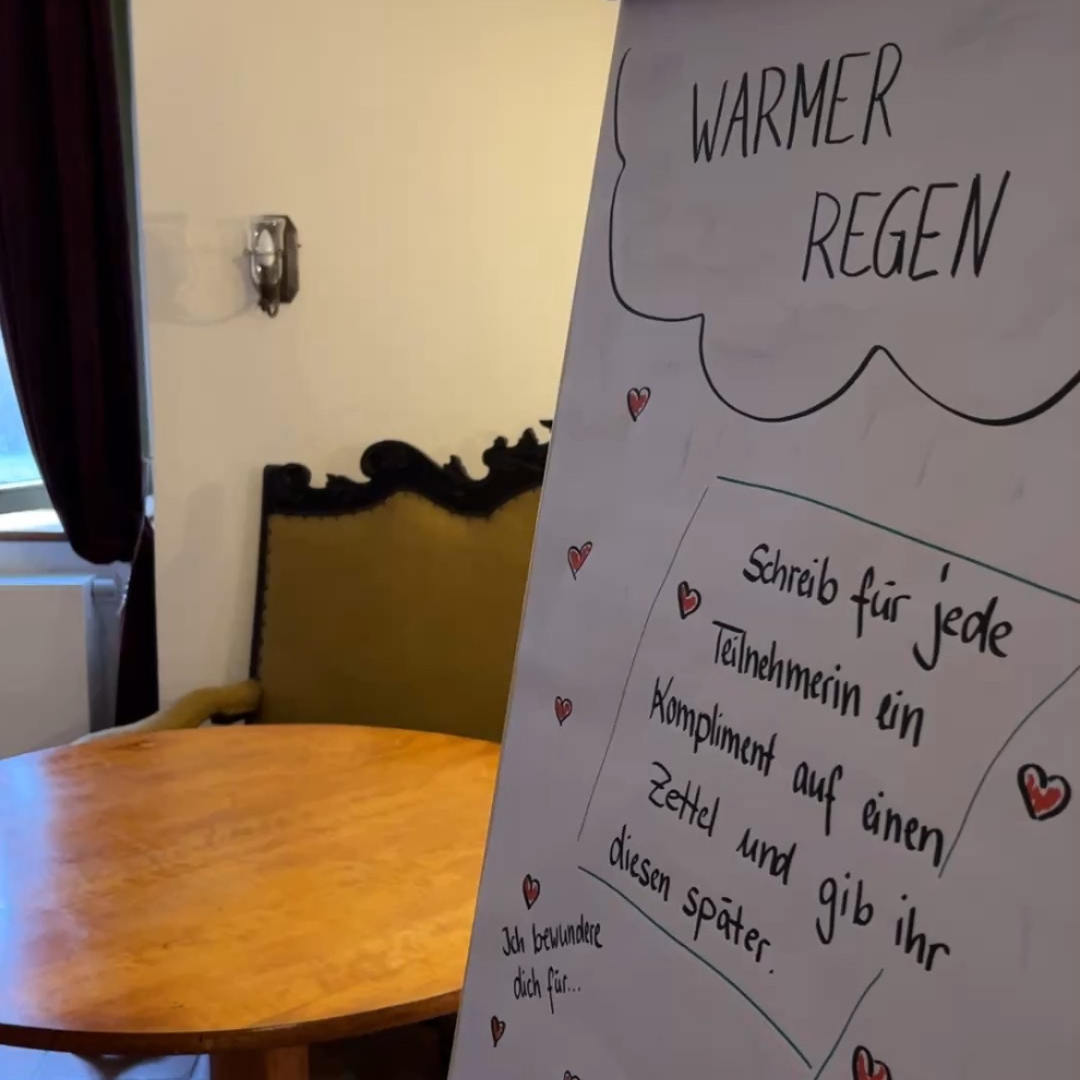 WARMER
REGEN
Schreib für jede
Teilnehmerin ein
Kompliment auf einen
Zettel und gib ihr
diesen später.
Ich bewundere
dich für...